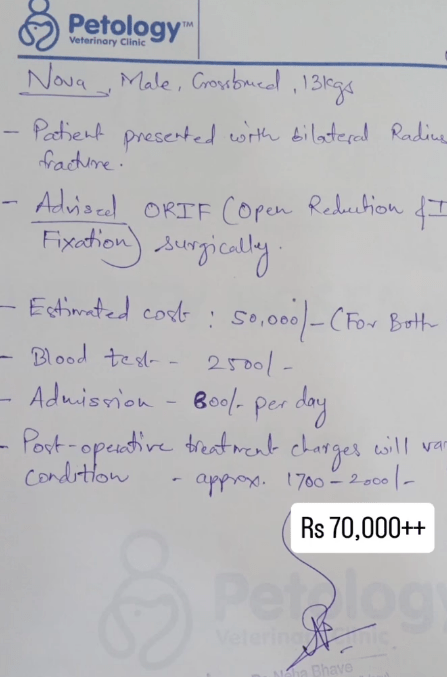 Petology™
Veterinary Clinic
Nova, Male, Crossbreed, 13kgs
- Patient presented with bilateral Radius
fracture.
- Advised ORIF (Open Reduction & I
Fixation) surgically.
- Estimated cost : 50,000/- (For Both
- Blood test - 2500/-
- Admission - 800/- per day
- Post-operative treatment charges will var
condition - approx. 1700 - 2000/-
Rs 70,000++
Petology
Veterinary Clinic
Neha Bhave